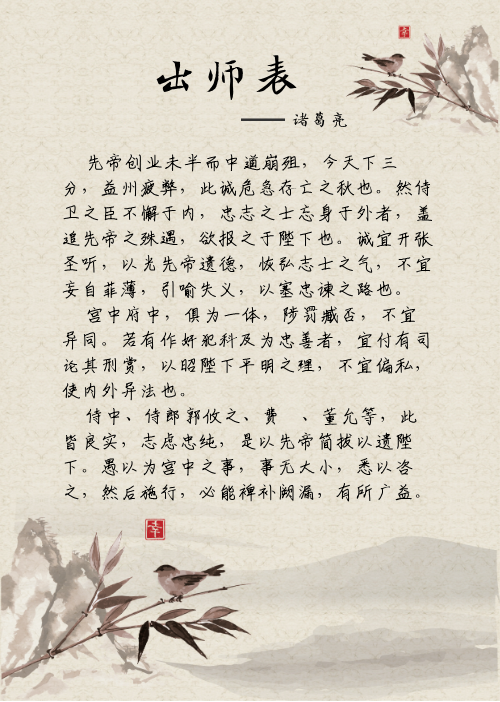 幸
出师表
——诸葛亮
先帝创业未半而中道崩殂，今天下三
分，益州疲弊，此诚危急存亡之秋也。然侍
卫之臣不懈于内，忠志之士忘身于外者，盖
追先帝之殊遇，欲报之于陛下也。诚宜开张
圣听，以光先帝遗德，恢弘志士之气，不宜
妄自菲薄，引喻失义，以塞忠谏之路也。
宫中府中，俱为一体，陟罚臧否，不宜
异同。若有作奸犯科及为忠善者，宜付有司
论其刑赏，以昭陛下平明之理，不宜偏私，
使内外异法也。
侍中、侍郎郭攸之、费　、董允等，此
皆良实，志虑忠纯，是以先帝简拔以遗陛
下。愚以为宫中之事，事无大小，悉以咨
之，然后施行，必能裨补阙漏，有所广益。
幸